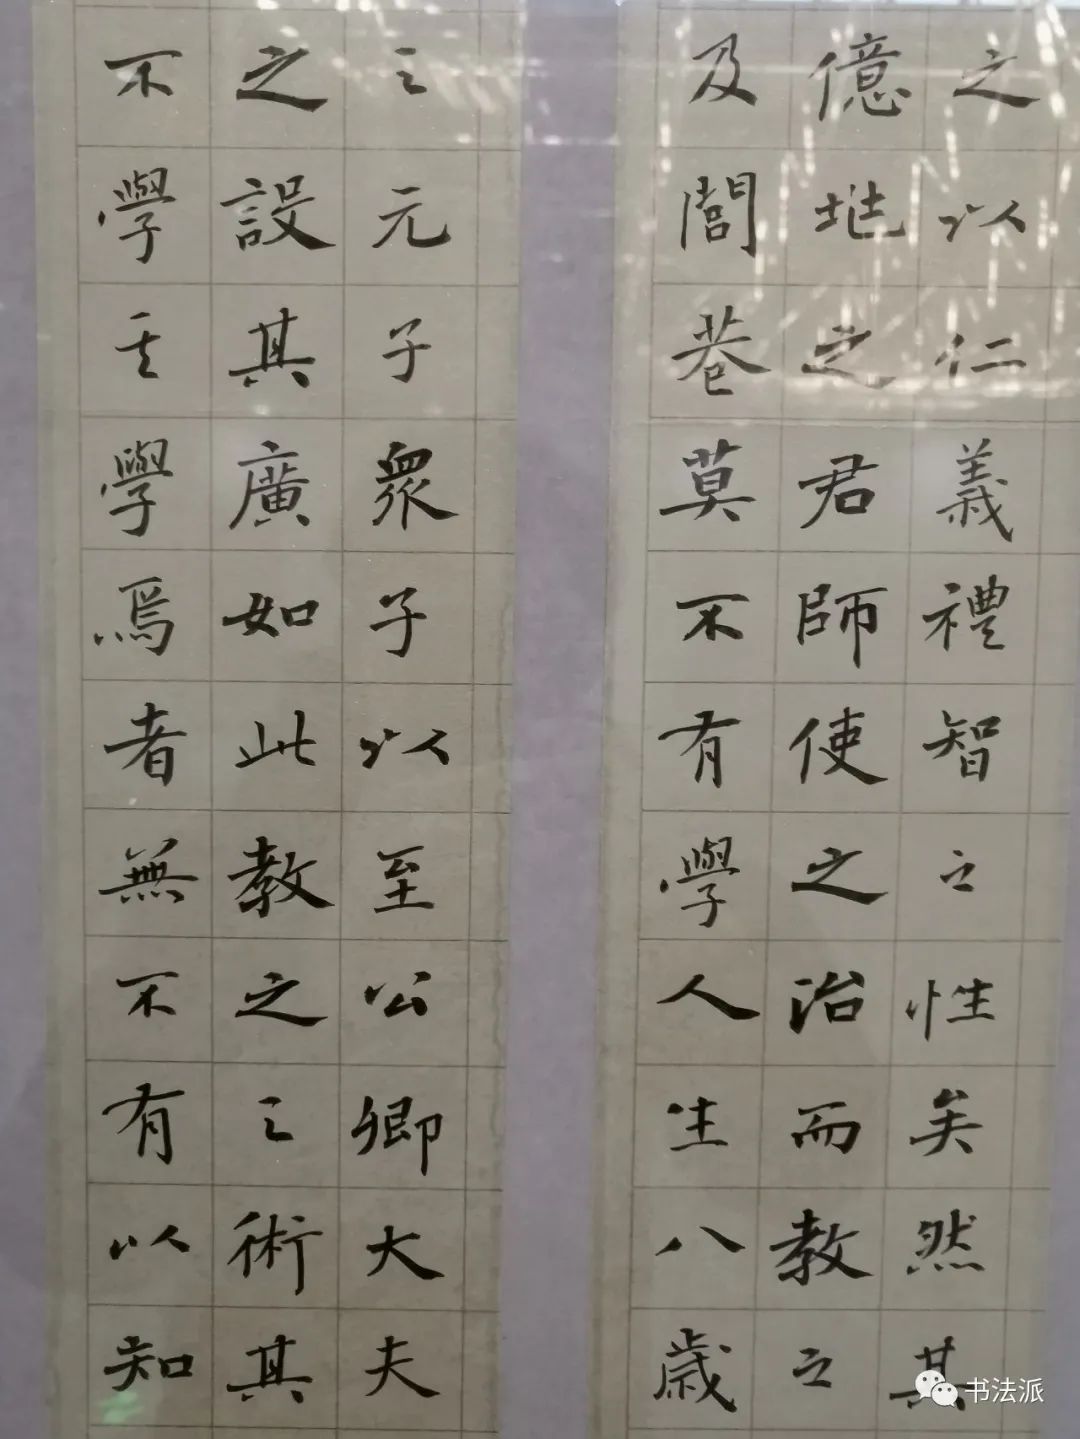 之以仁義禮智之性矣然其
億地之君師使之治而教之
及閭巷莫不有學人生八歲
之元子衆子以至公卿大夫
之設其廣如此教之之術其
不學其學焉者無不有以知
书法派